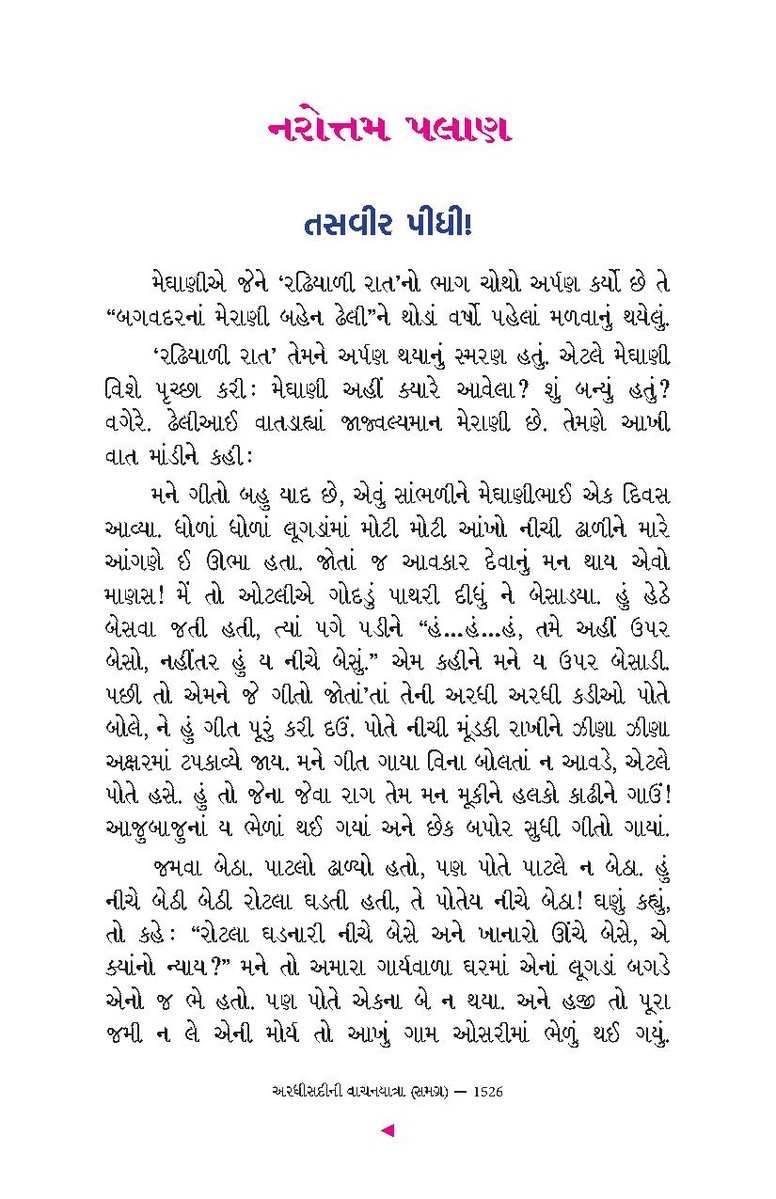 નરોત્તમ પલાણ
તસવીર પીધી!
મેઘાણીએ જેને ‘રઢિયાળી રાત’નો ભાગ ચોથો અર્પણ કર્યો છે તે
“બગવદરનાં મેરાણી બહેન ઢેલી”ને થોડાં વર્ષો પહેલાં મળવાનું થયેલું.
‘રઢિયાળી રાત’ તેમને અર્પણ થયાનું સ્મરણ હતું. એટલે મેઘાણી
વિશે પૃચ્છા કરી: મેઘાણી અહીં ક્યારે આવેલા? શું બન્યું હતું?
વગેરે. ઢેલીઆઈ વાતડાહ્યાં જાજ્વલ્યમાન મેરાણી છે. તેમણે આખી
વાત માંડીને કહી:
મને ગીતો બહુ યાદ છે, એવું સાંભળીને મેઘાણીભાઈ એક દિવસ
આવ્યા. ધોળાં ધોળાં લૂગડાંમાં મોટી મોટી આંખો નીચી ઢાળીને મારે
આંગણે ઈ ઊભા હતા. જોતાં જ આવકાર દેવાનું મન થાય એવો
માણસ! મેં તો ઓટલીએ ગોદડું પાથરી દીધું ને બેસાડયા. હું હેઠે
બેસવા જતી હતી, ત્યાં પગે પડીને “હં...હં...હં, તમે અહીં ઉપર
બેસો, નહીંતર હું ય નીચે બેસું.” એમ કહીને મને ય ઉપર બેસાડી.
પછી તો એમને જે ગીતો જોતાં’તાં તેની અરધી અરધી કડીઓ પોતે
બોલે, ને હું ગીત પૂરું કરી દઉં. પોતે નીચી મૂંડકી રાખીને ઝીણા ઝીણા
અક્ષરમાં ટપકાવ્યે જાય. મને ગીત ગાયા વિના બોલતાં ન આવડે, એટલે
પોતે હસે. હું તો જેના જેવા રાગ તેમ મન મૂકીને હલકો કાઢીને ગાઉં!
આજુબાજુનાં ય ભેળાં થઈ ગયાં અને છેક બપોર સુધી ગીતો ગાયાં.
જમવા બેઠા. પાટલો ઢાળ્યો હતો, પણ પોતે પાટલે ન બેઠા. હું
નીચે બેઠી બેઠી રોટલા ઘડતી હતી, તે પોતેય નીચે બેઠા! ઘણું કહ્યું,
તો કહે: “રોટલા ઘડનારી નીચે બેસે અને ખાનારો ઊંચે બેસે, એ
ક્યાંનો ન્યાય?” મને તો અમારા ગાર્યવાળા ઘરમાં એનાં લૂગડાં બગડે
એનો જ ભે હતો. પણ પોતે એકના બે ન થયા. અને હજી તો પૂરા
જમી ન લે એની મોર્ય તો આખું ગામ ઓસરીમાં ભેળું થઈ ગયું.
અરધીસદીની વાચનયાત્રા (સમગ્ર) — 1526